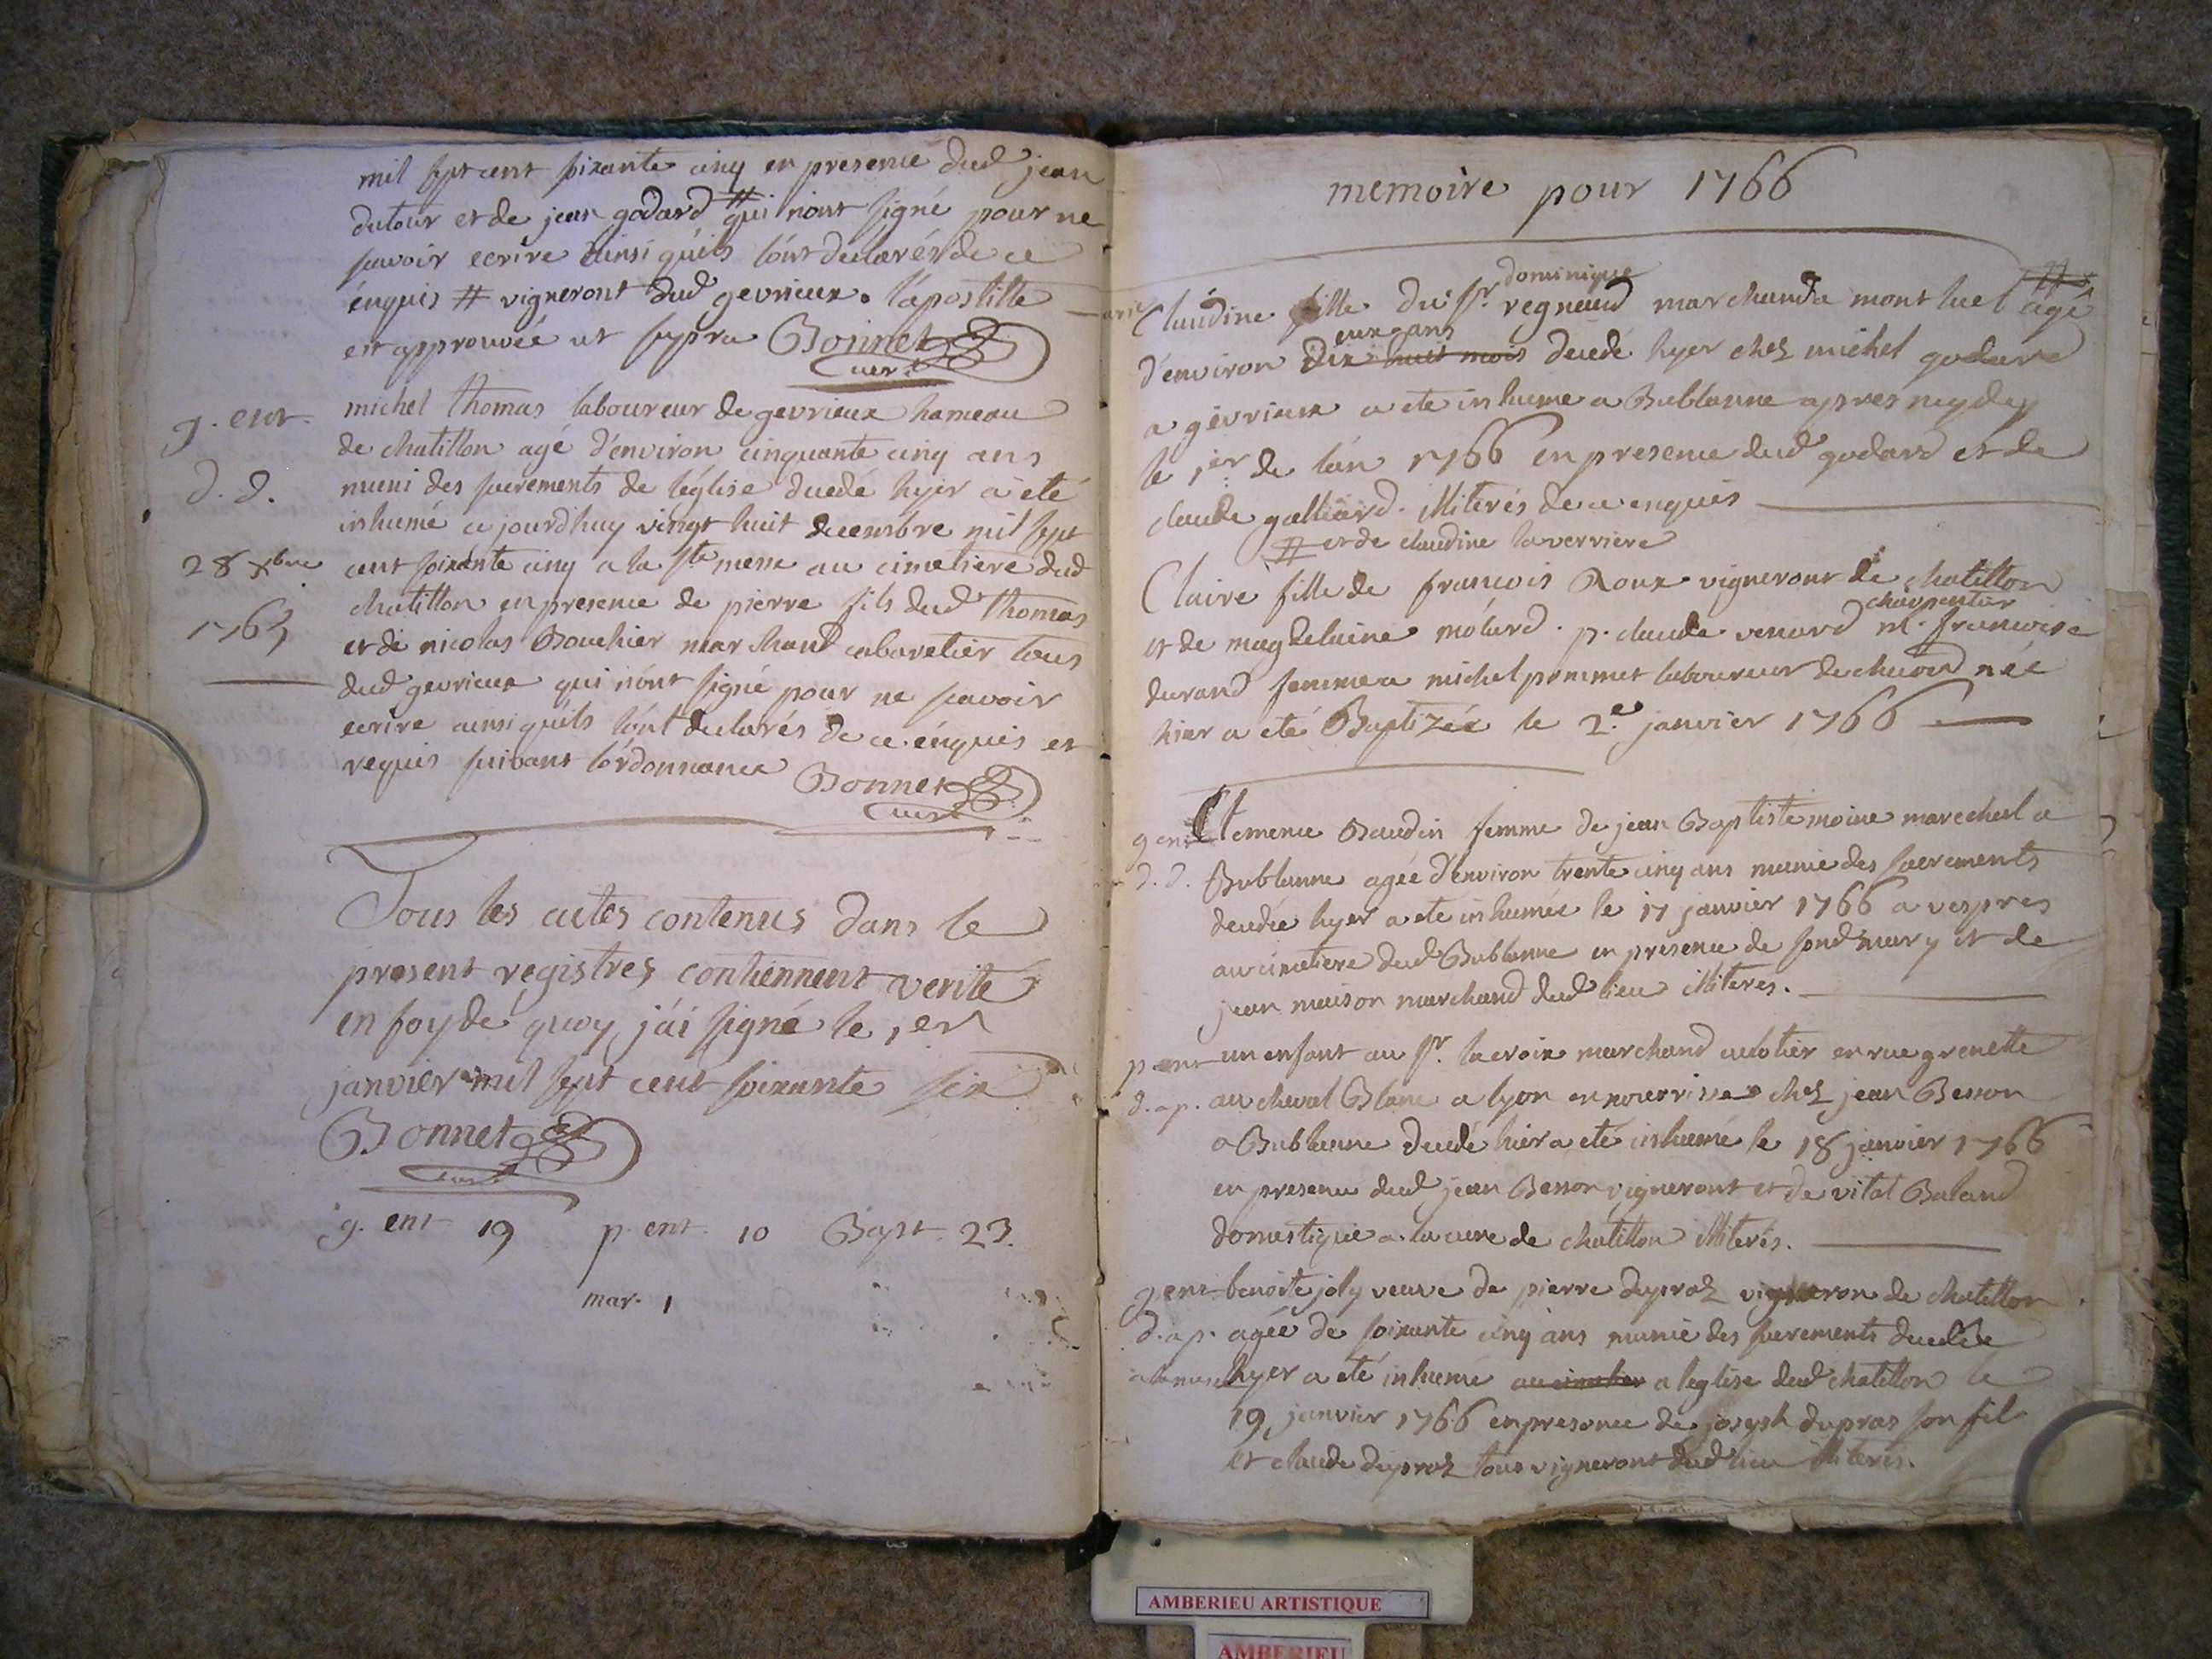 mil sept cent soixante cinq en presence dud jean
dutour et de jean godard # qui n'ont signé pour ne
scavoir ecrire ainsi qu'ils l'ont declarés de ce
enquis # vigneront dud gevrieux. l'apostille
est approuvée ut supra Bonnet
curé
g. ent.
d. d.
28 xbre
1765
michel thomas laboureur de gevrieux hameau
de chatillon agé d'environ cinquante cinq ans
muni des sacrements de l'église decedé hyer a été
inhumé ce jourdhuy vingt huit decembre mil sept
cent soixante cinq a la ste messe au cimetiere dud
chatillon en presence de pierre fils dud thomas
et de nicolas Bouchier marchand cabaretier tous
dud gevrieux qui n'ont signé pour ne scavoir
ecrire ainsi qu'ils l'ont declarés de ce enquis et
requis suivant l'ordonnance Bonnet
curé
Tous les actes contenus dans le
present registres contiennent verité
en foy de quoy j'ai signé le 1er
janvier mil sept cent soixante six
Bonnet
curé
g. ent 19 p. ent. 10 Bapt. 23.
mar. 1
memoire pour 1766
dominique
Claudine fille du sr. regnaud marchand a montluel # agé
eux ans
d'environ dix huit mois decedé hyer chez michel godard
a gevrieux a eté inhumé a Bublanne apres mydy
le 1er de l'an 1766 en presence dud godard et de
claude galliard. illiterés de ce enquis
# et de claudine laverriere
Claire fille de francois Roux vigneront de chatillon
charpentier
et de magdelaine molard. p. claude venard m. francoise
durand femme a michel pommet laboureur de chavord née
hier a eté Baptizée le 2.e janvier 1766
g ent
d. d.
Clemence Baudin femme de jean Baptiste moine marechal a
Bublanne agée d'environ trente cinq ans munie des sacrements
decedée hyer a eté inhumée le 17 janvier 1766 a vespres
au cimetiere dud Bublanne en presence de sond mary et de
jean maison marchand dud lieu illiterés.
p. ent
d. ap.
un enfant au sr. lacroix marchand culotier en rue grenette
au cheval Blanc a lyon en nourrisse chez jean Besson
a Bublanne decedé hier a eté inhumé le 18 janvier 1766
en presence dud jean Besson vigneront et de vital Baland
domestique a la cure de chatillon illiterés.
g ent
d. ap.
benoite joly veuve de pierre dupraz vigneron de chatillon
agée de soixante cinq ans munie des sacrements decedée
hyer a eté inhumé au cimetier a leglise dud chatillon le
19 janvier 1766 en presence de joseph dupras son fil
et claude dupraz tous vigneront dud lieu illiterés.
AMBERIEU ARTISTIQUE
AMBERIEU